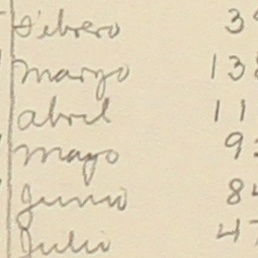 Febrero 3
Marzo 13
abril 11
Mayo 9
Junio 8
Julio 47